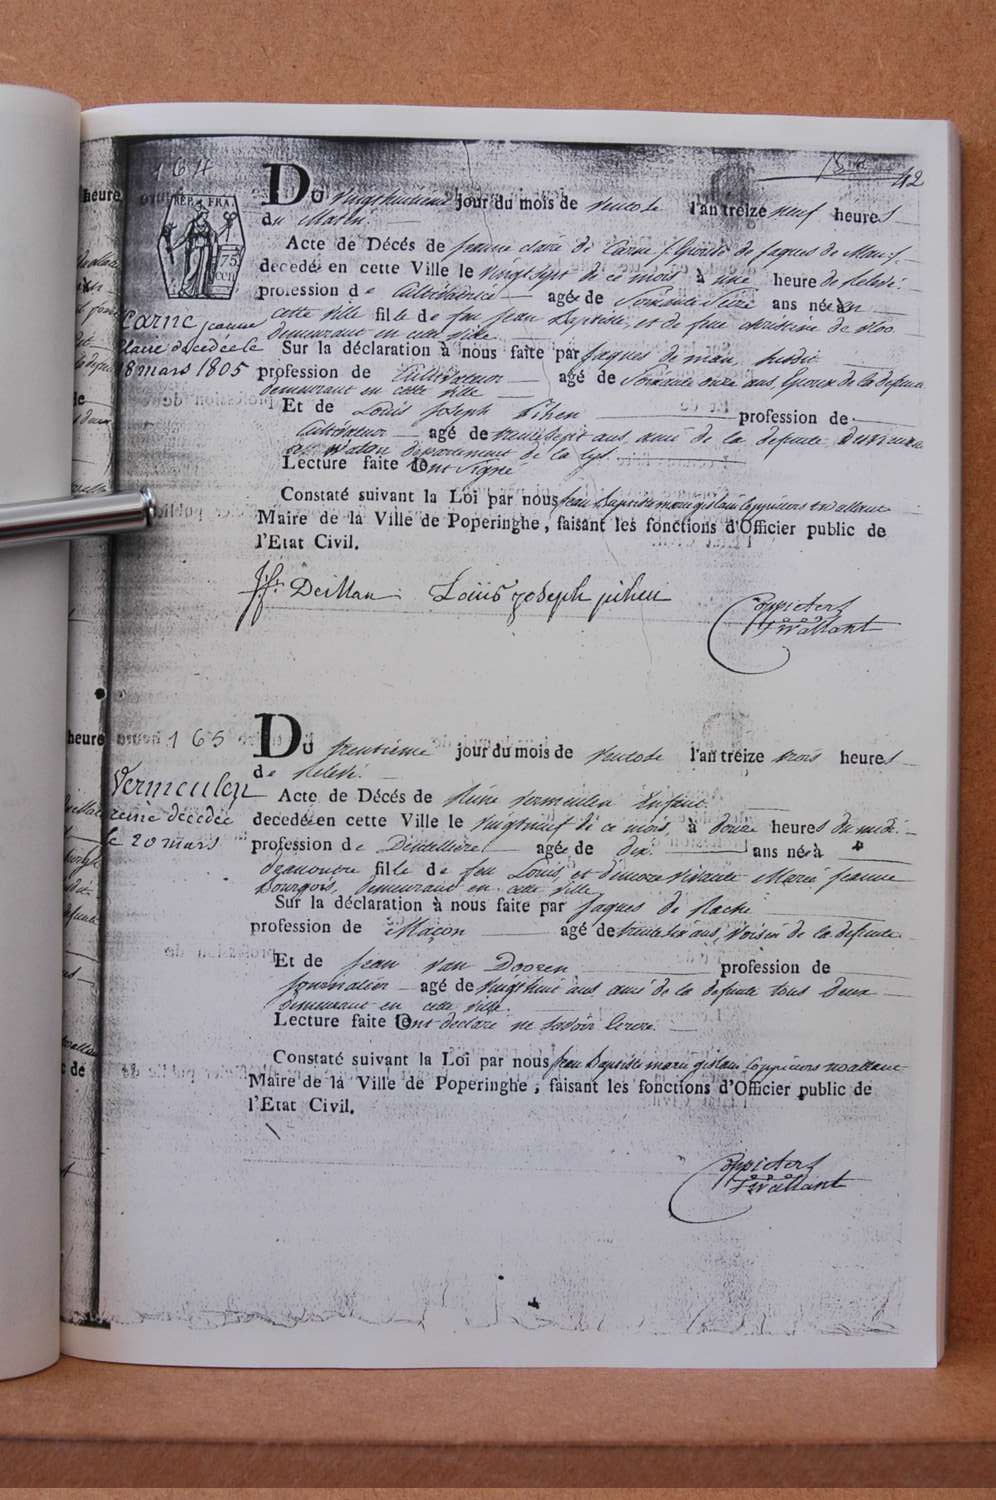 164
42
heure
REP. FRA.
75
CEN
Du vingthuitieme jour du mois de ventose l'an treize neuf heures
du Matin
Acte de Décés de jeanne claire de Carne Epouse de Jaques de Man
decedée en cette Ville le vingt sept de ce mois à une heure de Relevé
profession de Cultivatrice agée de Soixante Seize ans née en
cette ville fille de feu jean Baptiste, et de feue christine de vloo
demeurant en cette ville
Carne jeanne
Claire decedée le
18 mars 1805
Sur la déclaration à nous faite par Jaques de man, susdit
profession de Cultivateur agé de Soixante onze ans, Epoux de la defunte
demeurant en cette ville
Et de Louis Joseph Pihen profession de
Cultivateur agé de trente sept ans, ami de la defunte demeurant
a Watou departement de la Lys
Lecture faite ont signé
Constaté suivant la Loi par nous jean Baptiste marie gislain Coppieters Wallant
Maire de la Ville de Poperinghe, faisant les fonctions d'Officier public de
l'Etat Civil.
Js. DeMan Louis joseph pihen
Coppieters
Wallant
heure
165
Du trentieme jour du mois de ventose l'an treize trois heures
de Relevé.
Vermeulen
reine decedée
le 20 mars
Acte de Décés de Reine Vermeulen Enfant
decedée en cette Ville le vingt neuf de ce mois, à douze heures du midi
profession de Dentellière agée de dix ans née à
fille de feu Louis, et demeurant Marie jeanne
Bourgois, demeurant en cette ville
Sur la déclaration à nous faite par Jaques de Racke
profession de Maçon agé de trente six ans, voisin de la defunte
Et de Jean van Dooren profession de
Journalier agé de vingt huit ans ami de la defunte tous deux
demeurant en cette ville.
Lecture faite ont declaré ne savoir Ecrire.
Constaté suivant la Loi par nous jean Baptiste marie gislain Coppieters Wallant
Maire de la Ville de Poperinghe, faisant les fonctions d'Officier public de
l'Etat Civil.
Coppieters
Wallant